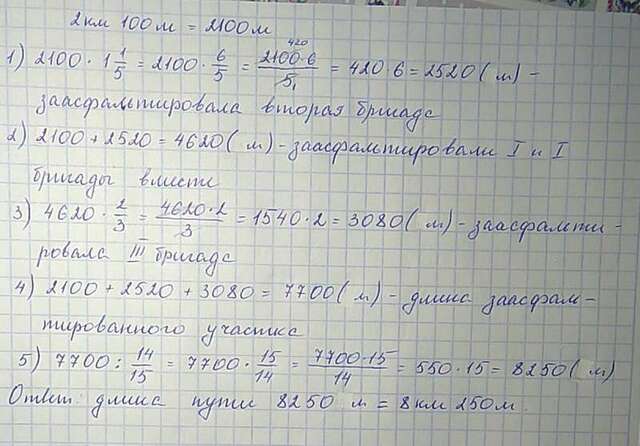 2км 100м = 2100м
1) 2100 · 1 1/5 = 2100 · 6/5 = 2100·6/5 = 420·6 = 2520 (м) –
заасфальтировала вторая бригада
2) 2100 + 2520 = 4620 (м) – заасфальтировали I и I
бригады вместе
3) 4620 · 2/3 = 4620·2/3 = 1540·2 = 3080 (м) – заасфальти –
ровала III бригада
4) 2100 + 2520 + 3080 = 7700 (м) – длина заасфаль –
тированного участка
5) 7700 : 14/15 = 7700 · 15/14 = 7700·15/14 = 550·15 = 8250 (м)
Ответ: длина пути 8250 м = 8км 250м.